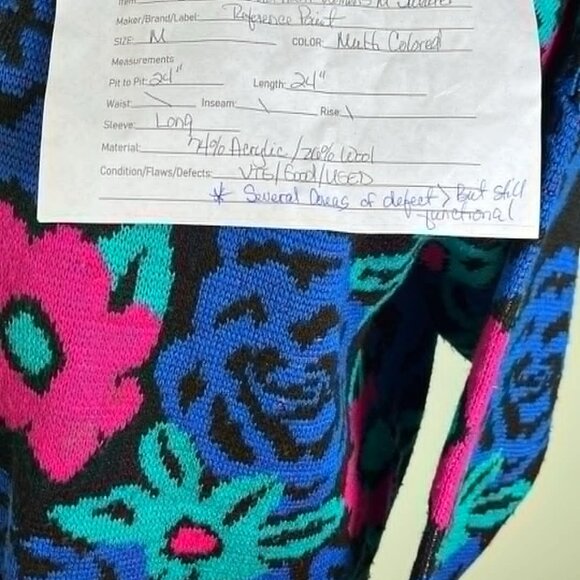 Item: Women's M Sweater
Maker/Brand/Label: Reference Point
SIZE: M COLOR: Multi Colored
Measurements
Pit to Pit: 24" Length: 24"
Waist: \ Inseam: \ Rise: \
Sleeve: Long
Material: 74% Acrylic/26% Wool
Condition/Flaws/Defects: VTG/Good/USED
* Several Areas of defect > But still
functional